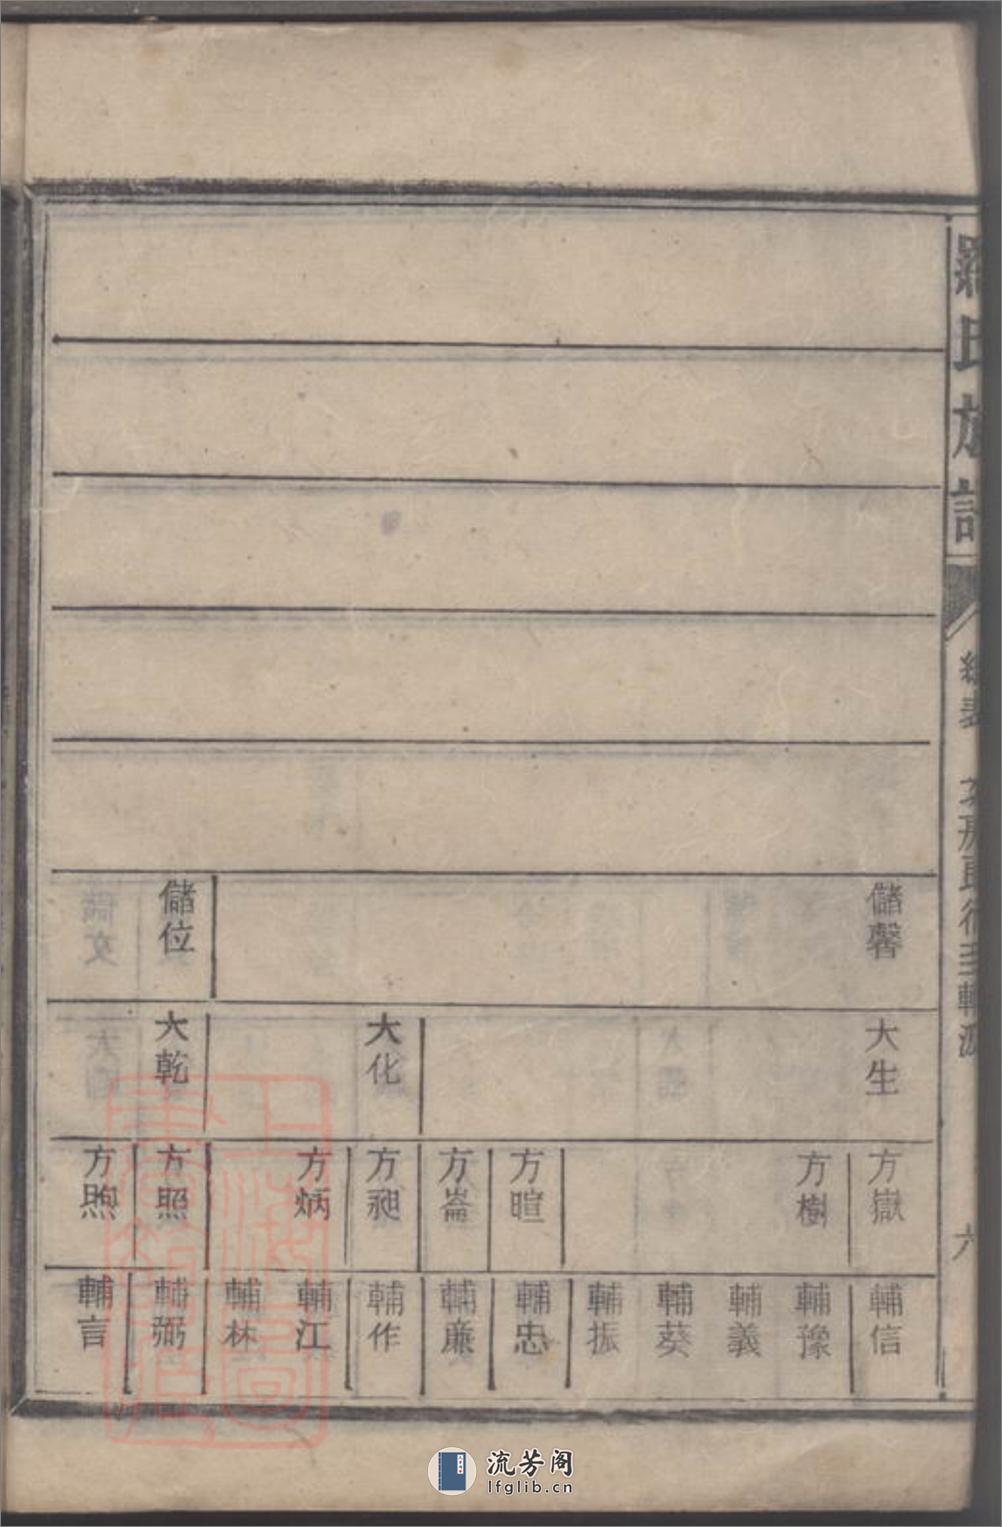 羅氏族譜
總表
次房時行至輔源
六
儲馨
儲位
大生
大化
大乾
方嶽
方樹
方暄
方崙
方昶
方炳
方照
方煦
輔信
輔豫
輔義
輔葵
輔振
輔忠
輔廉
輔作
輔江
輔林
輔弼
輔言
上海圖書館藏
流芳阁
lfglib.cn